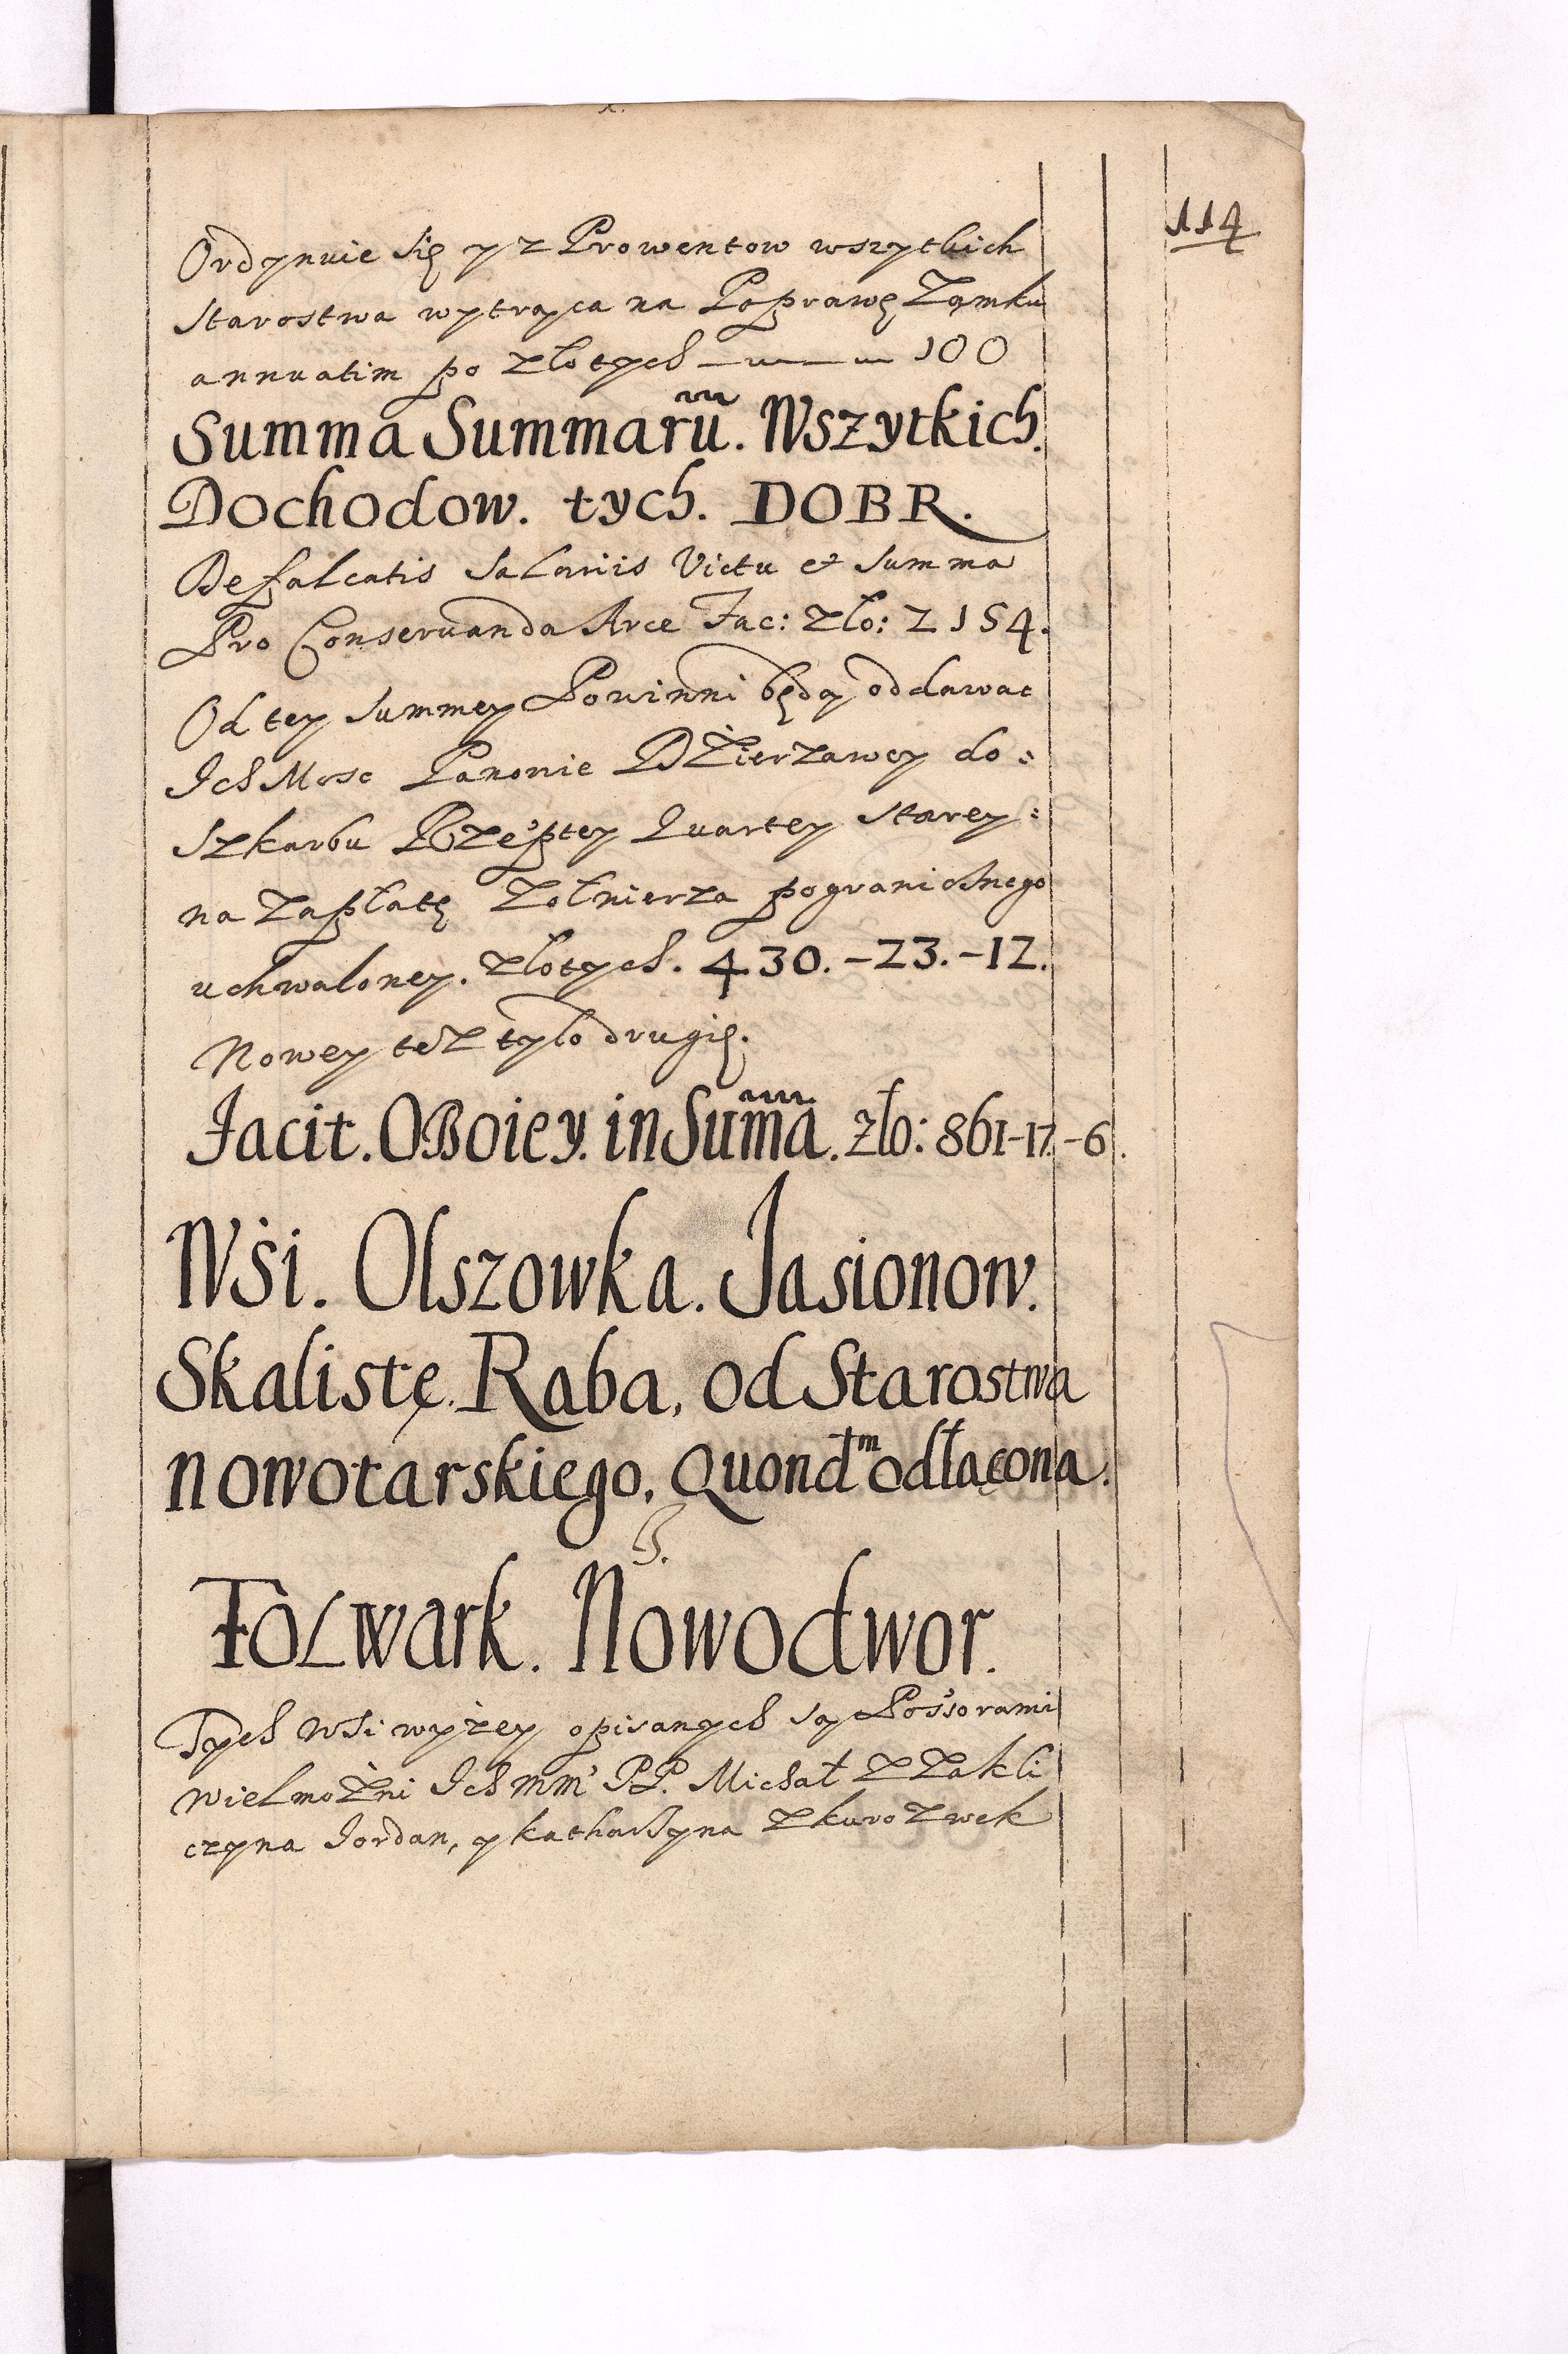 114
Ordynuie się y z Prowentow wszytkich
Starostwa wytrąca na Poprawę Zamku
annuatim po złotych 100
Summa Summarũ. Wszytkich.
Dochodow. tych. DOBR.
Defalcatis Salariis Victu et Summa
Pro Conseruanda Arce Fac: zło: 2154.
Od tey Summey Powinni będą oddawac
Ich Mosc Panowie Dzierzawcy do:
Szkarbu Rzeptey Quartey Starey:
na Zapłatę Zołnierza pogranicznego
uchwaloney. złotych. 430.-23.-12.
Nowey też tylo drugie.
Facit. OBoiey. in Sum̃a. zło: 861-17.-6.
Wśi. Olszowka. Jasionow.
Skalistę. Raba, od Starostwa
nowotarskiego, Quondm odłącona.
Folwark. Nowodwor.
Tych Wsi wyżey opisanych są Possorami
Wielmożni Ich mm PP. Michał z Zakli
czyna Jordan, y Katharzyna z kurozwek